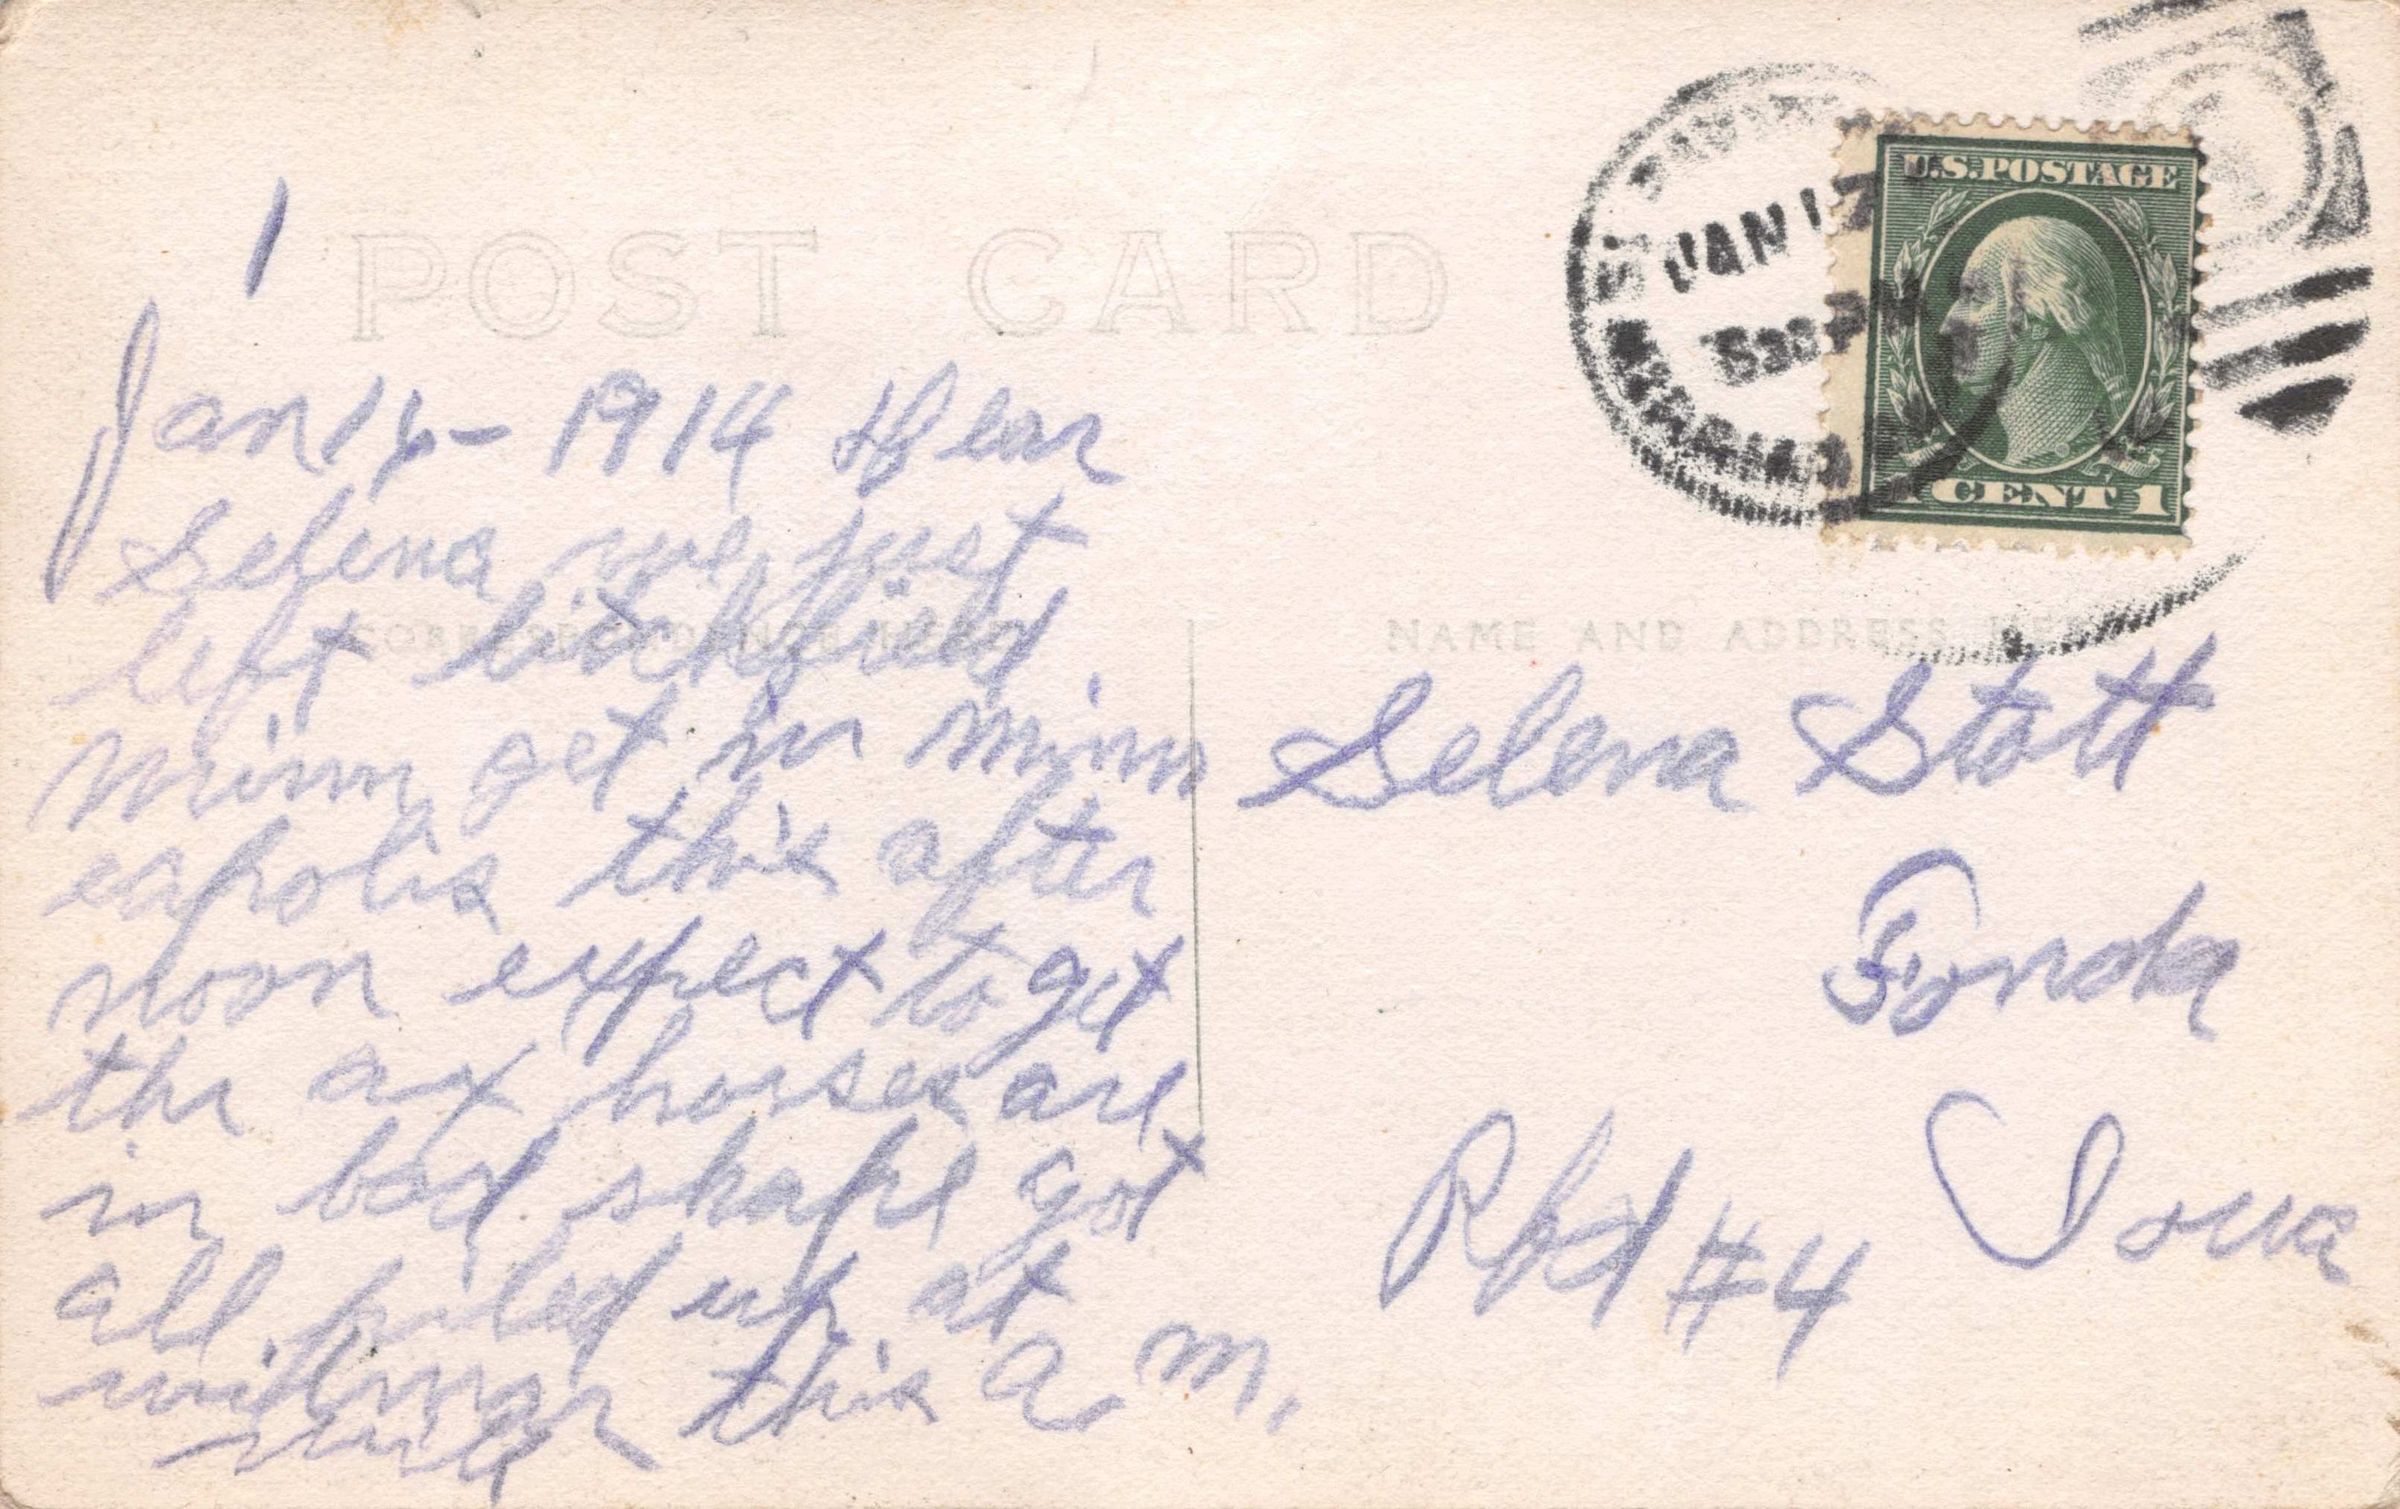 POST CARD
Jan 16 - 1914 Dear
Selena we just
left Litchfield
Minn get in Minn
eapolis this after
noon expect to get
the ax horses are
in bad shape got
all piled up at
wilmar this a.m.
CORRESPONDENCE HERE
NAME AND ADDRESS HERE
Selena Stott
Fonda
Iowa
Rfd #4
JAN 17
530 PM
U.S. POSTAGE
1 CENT 1